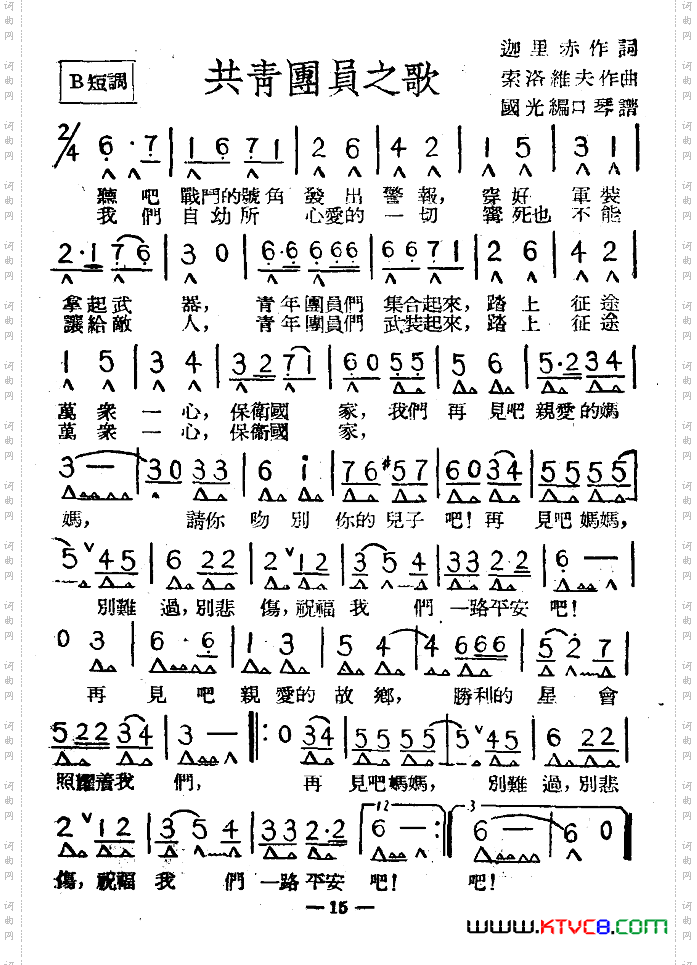 B短調
共青團員之歌
迦里赤作詞
索洛維夫作曲
國光編口琴譜
2/4 6·7 | 1 6 7 1 | 2 6 | 4 2 | 1 5 | 3 1 |
聽吧 戰鬥的號角 發出 警報, 穿好 軍裝
我們 自幼所 心愛的 一切 寧死也 不能
2·1 7 6 | 3 0 | 6·6 6 6 6 | 6 6 7 1 | 2 6 | 4 2 |
拿起武 器, 青年團員們 集合起來, 踏上 征途
讓給敵 人, 青年團員們 武裝起來, 踏上 征途
1 5 | 3 4 | 3 2 7 1 | 6 0 5 5 | 5 6 | 5·2 3 4 |
萬衆 一心, 保衛國 家, 我們 再見吧 親愛的媽
萬衆 一心, 保衛國 家,
3 — | 3 0 3 3 | 6 i | 7 6 #5 7 | 6 0 3 4 | 5 5 5 5 |
媽, 請你 吻別 你的兒子 吧! 再 見吧媽媽,
5 ∨ 4 5 | 6 2 2 | 2 ∨ 1 2 | 3 5 4 | 3 3 2·2 | 6 — |
別難 過, 別悲 傷, 祝福 我 們 一路平安 吧!
0 3 | 6·6 | 1 3 | 5 4 | 4 6 6 6 | 5 2 7 |
再 見吧 親愛的 故鄉, 勝利的 星會
5 2 2 3 4 | 3 — ‖: 0 3 4 | 5 5 5 5 | 5 ∨ 4 5 | 6 2 2 |
照耀着我 們, 再 見吧媽媽, 別難 過, 別悲
2 ∨ 1 2 | 3 5 4 | 3 3 2·2 | 12 6 — :‖ 3 6 — | 6 0 ‖
傷, 祝福 我 們 一路平安 吧! 吧!
— 15 —
www.KTVC8.com
词曲网